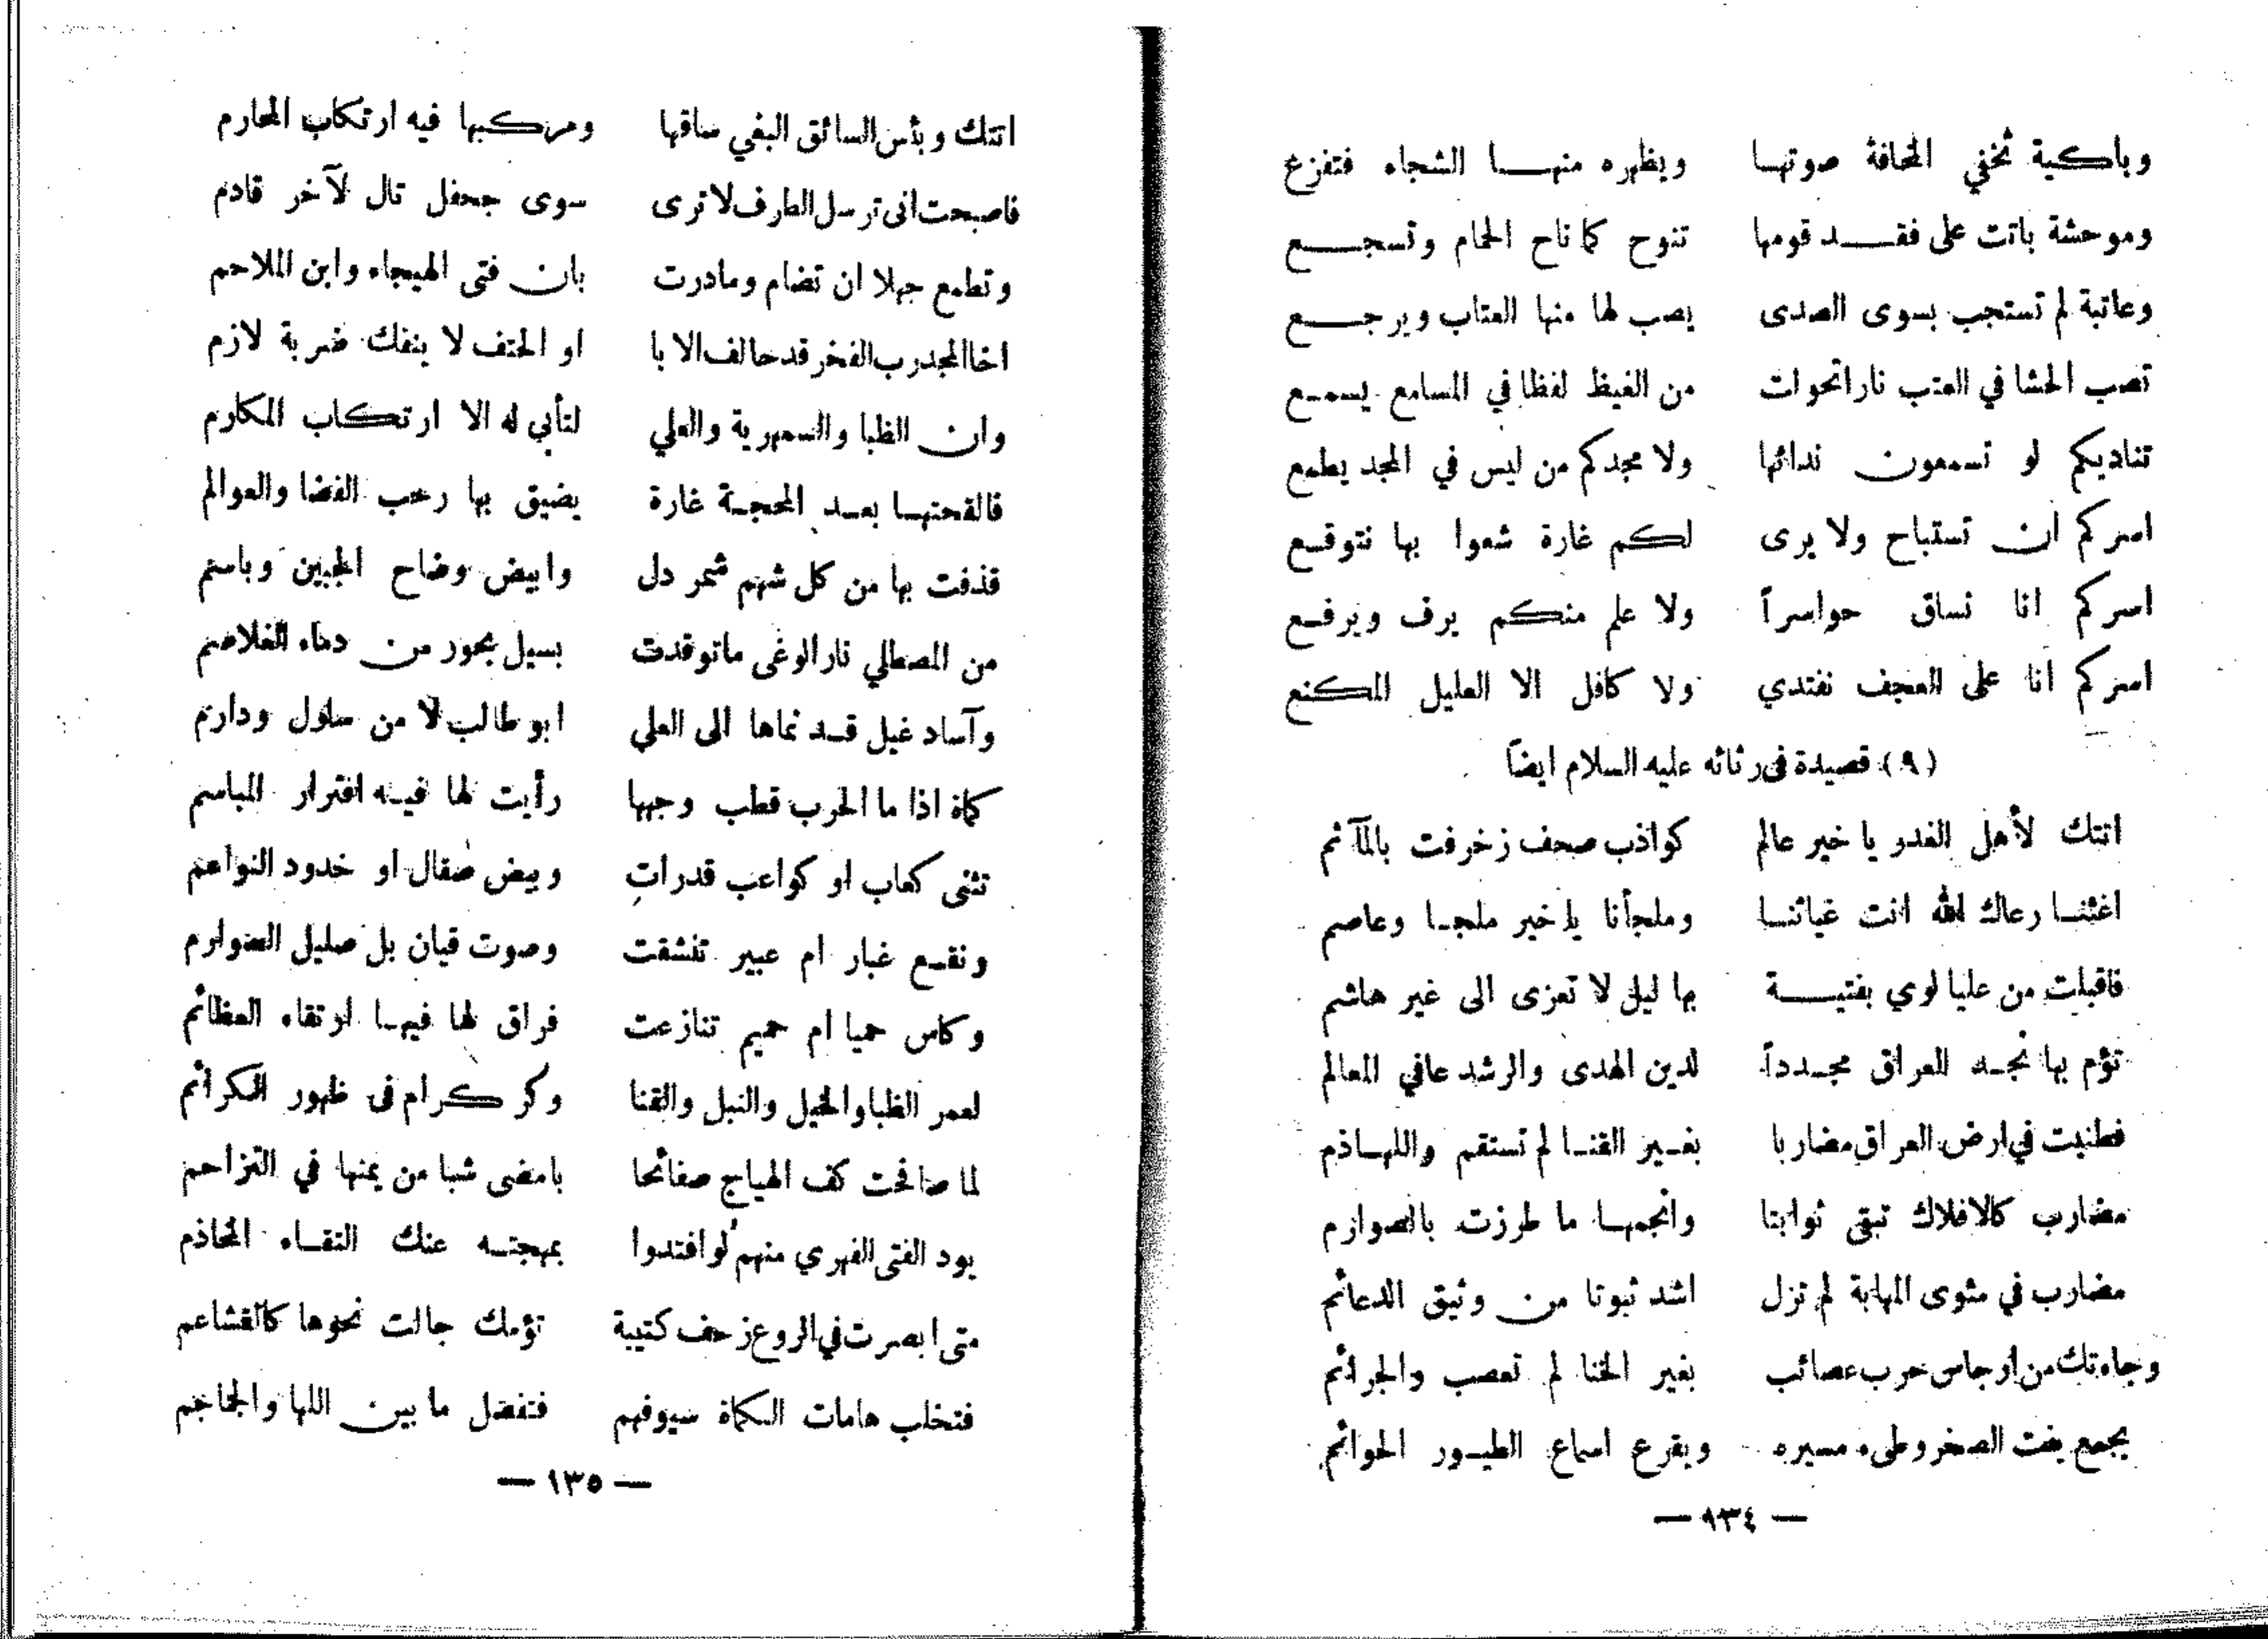 وباكية تخفي المخافة صوتها ويظهره منها الشجاء فتفزع
وموحشة باتت على فقد قومها تنوح كما ناح الحمام وتسجع
وعاتبة لم تستجب بسوى الصدى يصب لها منها العتاب ويرجع
تصب الحشا في العتب نارا تحولت من الغيظ لفظا في المسامع يسمع
تناديكم لو تسمعون ندائها ولا مجدكم من ليس في المجد يطمع
اسركم ان تستباح ولا يرى لكم غارة شعوا بها نتوقع
اسركم انا نساق حواسراً ولا علم منكم يرف ويرفع
اسركم انا على العجف نفتدي ولا كافل الا العليل المكنع
(٩) قصيدة فى رثائه عليه السلام ايضاً
اتتك لأهل الغدر يا خير عالم كواذب صحف زخرفت بالمآثم
اغثنا رعاك الله انت غياثنا وملجأنا يا خير ملجا وعاصم
فاقبلت من عليا لوي بفتية بها ليل لا تعزى الى غير هاشم
تؤم بها نجد العراق مجدداً لدين الهدى والرشد عافي المعالم
فطنبت في ارض العراق مضاربا بغير القنا لم تستقم واللهاذم
مضارب كالافلاك تبقى ثوابتا وانجمها ما طرزت بالصوارم
مضارب في مثوى المهابة لم تزل اشد ثبوتا من وثيق الدعائم
وجاءتك من ارجاس حرب عصائب بغير الخنا لم تعصب والجرائم
بجمع يفت الصخر وطىء مسيره ويقرع اسماع الطيور الحوائم
— ١٣٤ —
اتتك وبئس السائق البغي ساقها ومركبها فيه ارتكاب المحارم
فاصبحت انى ترسل الطرف لا ترى سوى جحفل تال لآخر قادم
وتطمع جهلا ان تضام ومادرت بان فتى الهيجاء وابن الملاحم
اخا المجد رب الفخر قد حالف الابا او الحتف لا ينفك ضربة لازم
وان الظبا والسمهرية والعلي لتأبي له الا ارتكاب المكارم
فالقحتها بعد المحجة غارة يضيق بها رحب الفضا والعوالم
قذفت بها من كل شهم شمر دل وابيض وضاح الجبين وباسم
من المصطلي نار الوغى ماتوقدت بسيل بحور من دماء الغلاصم
وآساد غيل قد نماها الى العلي ابو طالب لا من سلول ودارم
كماة اذا ما الحرب قطب وجهها رأيت لها فيه افترار المباسم
تثنى كعاب او كواعب قدرات وبيض صقال او خدود النواعم
ونقع غبار ام عبير تنشقت وصوت قيان بل صليل الصوارم
وكاس حميا ام حميم تنازعت فراق لها فيها ارتقاء العظائم
لعمر الظبا والخيل والنبل والقنا وكر كرام فى ظهور الكرائم
لما صافحت كف الهياج صفائحا بامضى شبا من يمنها في التزاحم
يود الفتى الفهري منهم لو افتدوا بمهجته عنك التقاء المخاذم
متى ابصرت في الروع زحف كتيبة تؤمك جالت نحوها كالقشاعم
فتخلب هامات الكماة سيوفهم فتفضل ما بين اللها والجماجم
— ١٣٥ —